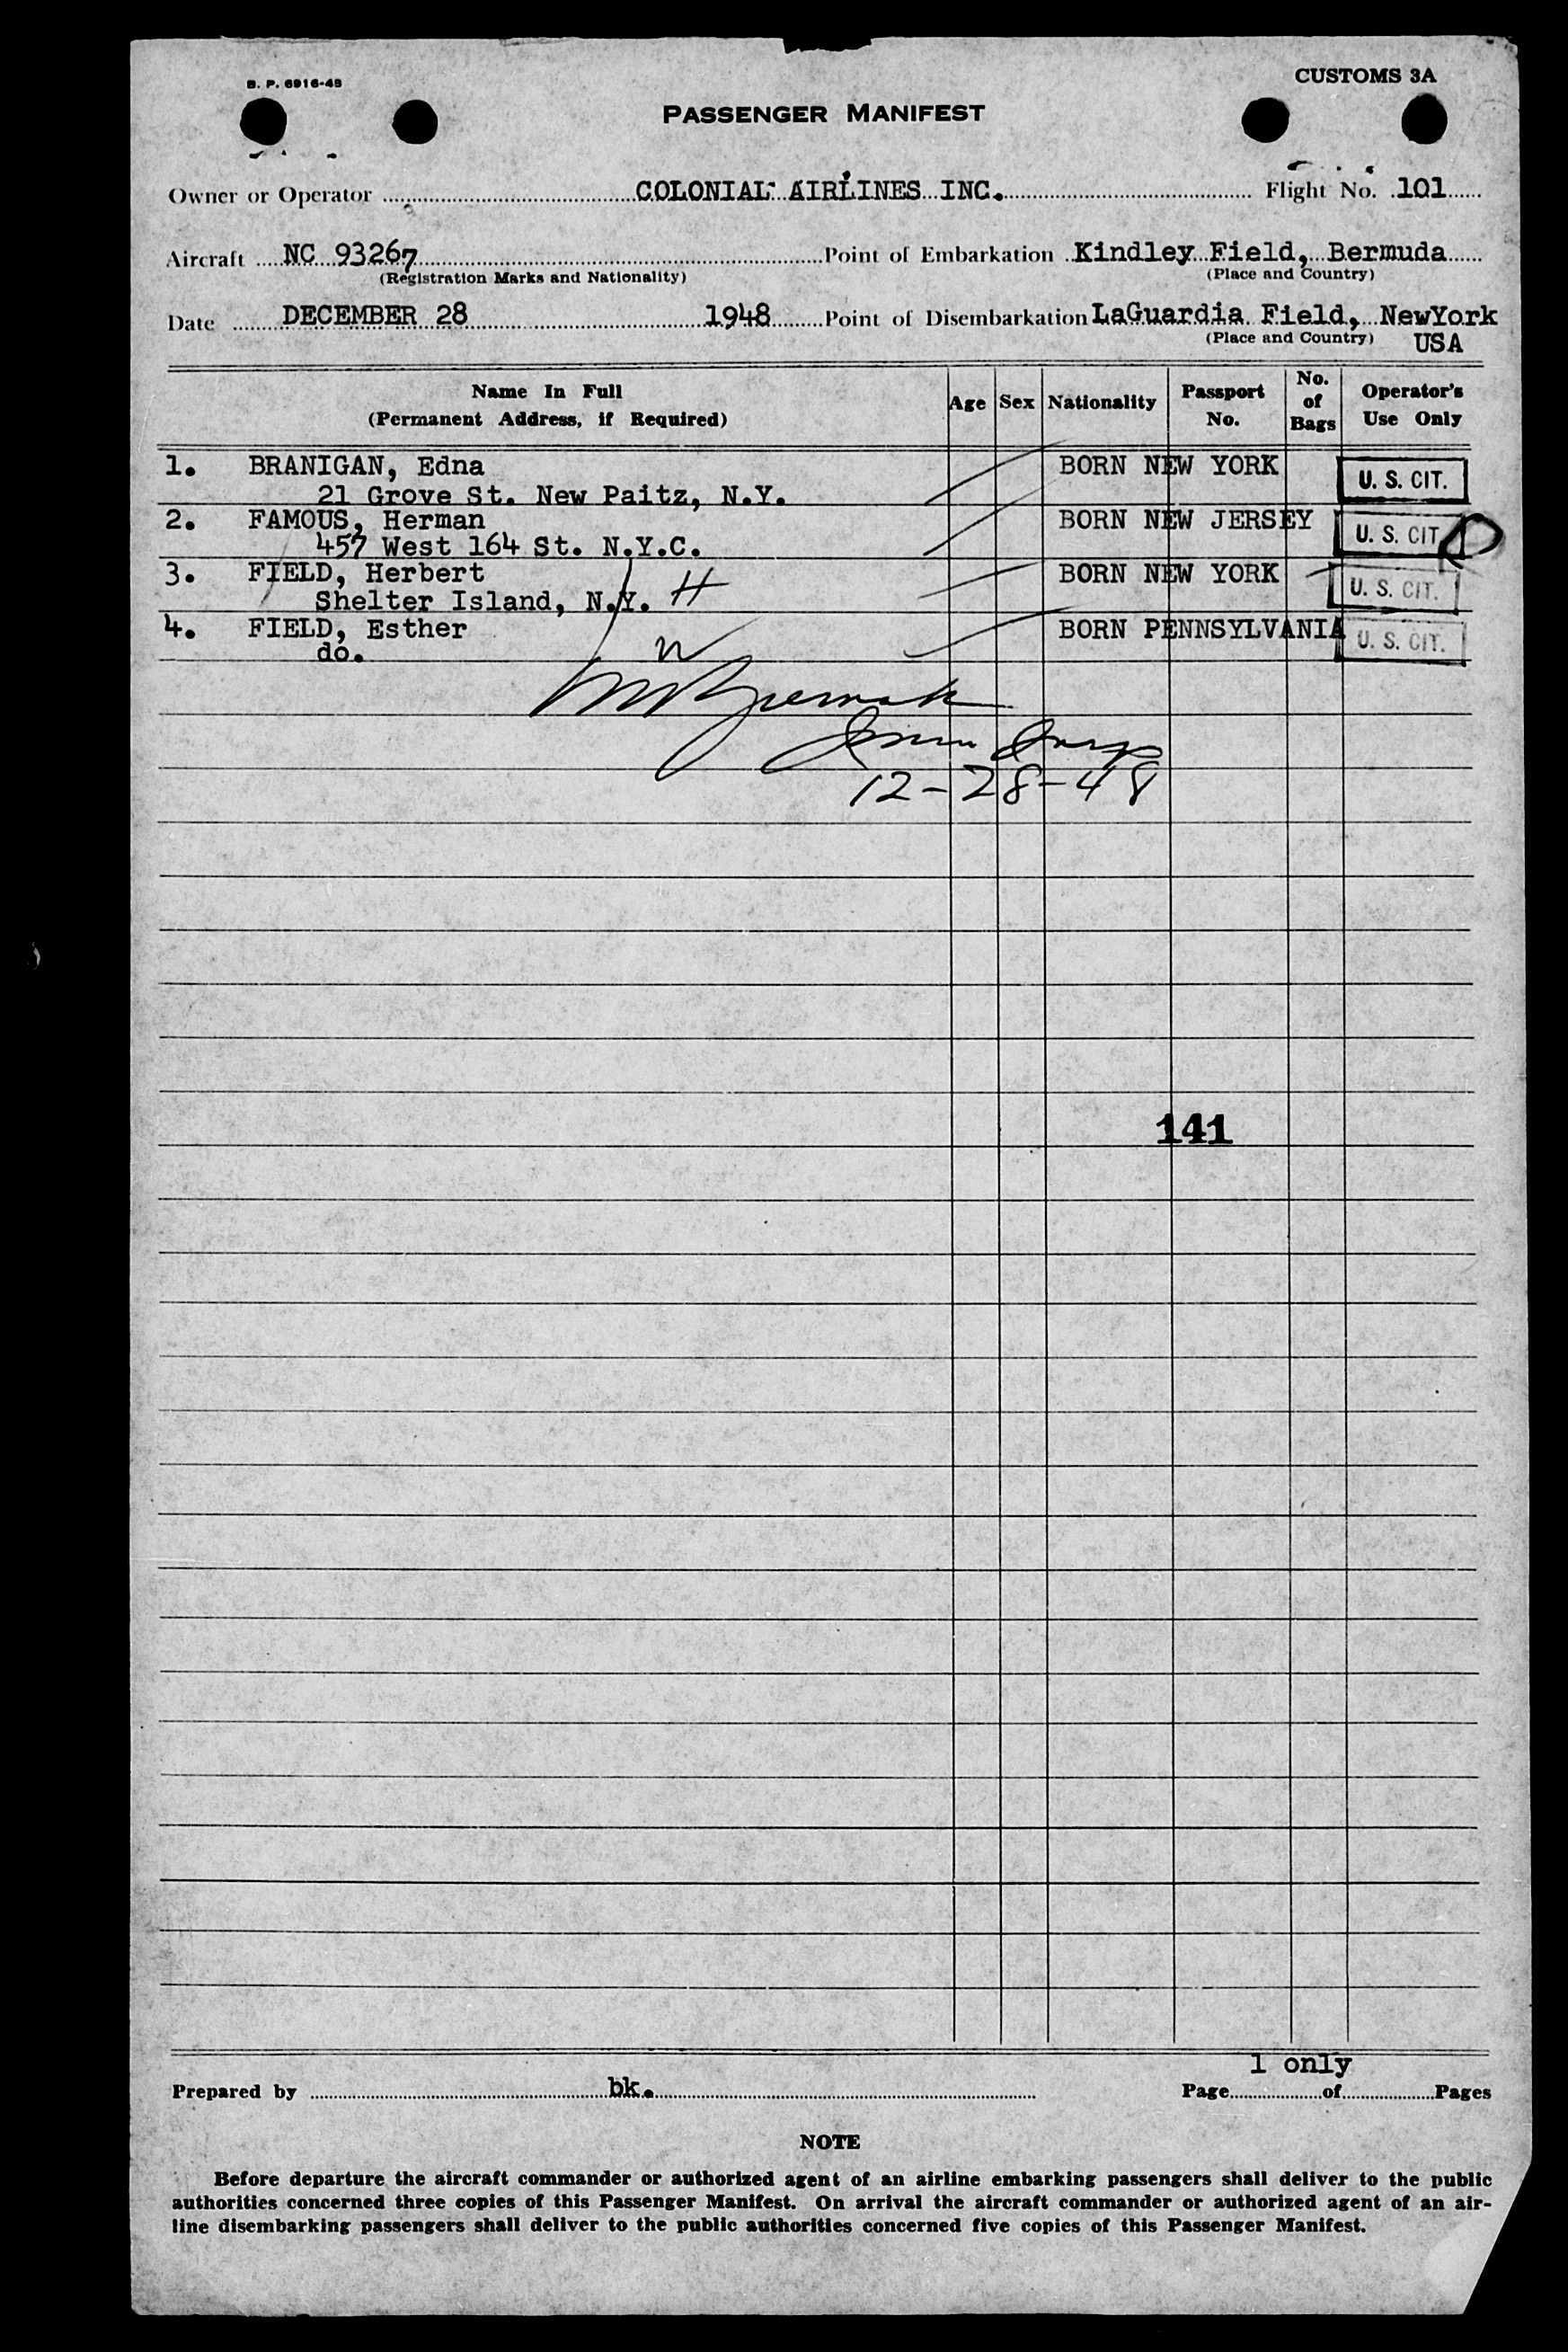 B. P. 6916-48
CUSTOMS 3A
PASSENGER MANIFEST
Owner or Operator COLONIAL AIRLINES INC. Flight No. 101
Aircraft NC 93267 Point of Embarkation Kindley Field, Bermuda
(Registration Marks and Nationality) (Place and Country)
Date DECEMBER 28 1948 Point of Disembarkation LaGuardia Field, NewYork
(Place and Country) USA
Name In Full
(Permanent Address, if Required)
Age
Sex
Nationality
Passport
No.
No.
of
Bags
Operator's
Use Only
1. BRANIGAN, Edna BORN NEW YORK U. S. CIT.
21 Grove St. New Paitz, N.Y.
2. FAMOUS, Herman BORN NEW JERSEY U. S. CIT.
457 West 164 St. N.Y.C.
3. FIELD, Herbert BORN NEW YORK U. S. CIT.
Shelter Island, N.Y. H
4. FIELD, Esther BORN PENNSYLVANIA U. S. CIT.
do. W
12-28-48
141
1 only
Prepared by bk. Page of Pages
NOTE
Before departure the aircraft commander or authorized agent of an airline embarking passengers shall deliver to the public
authorities concerned three copies of this Passenger Manifest. On arrival the aircraft commander or authorized agent of an air-
line disembarking passengers shall deliver to the public authorities concerned five copies of this Passenger Manifest.